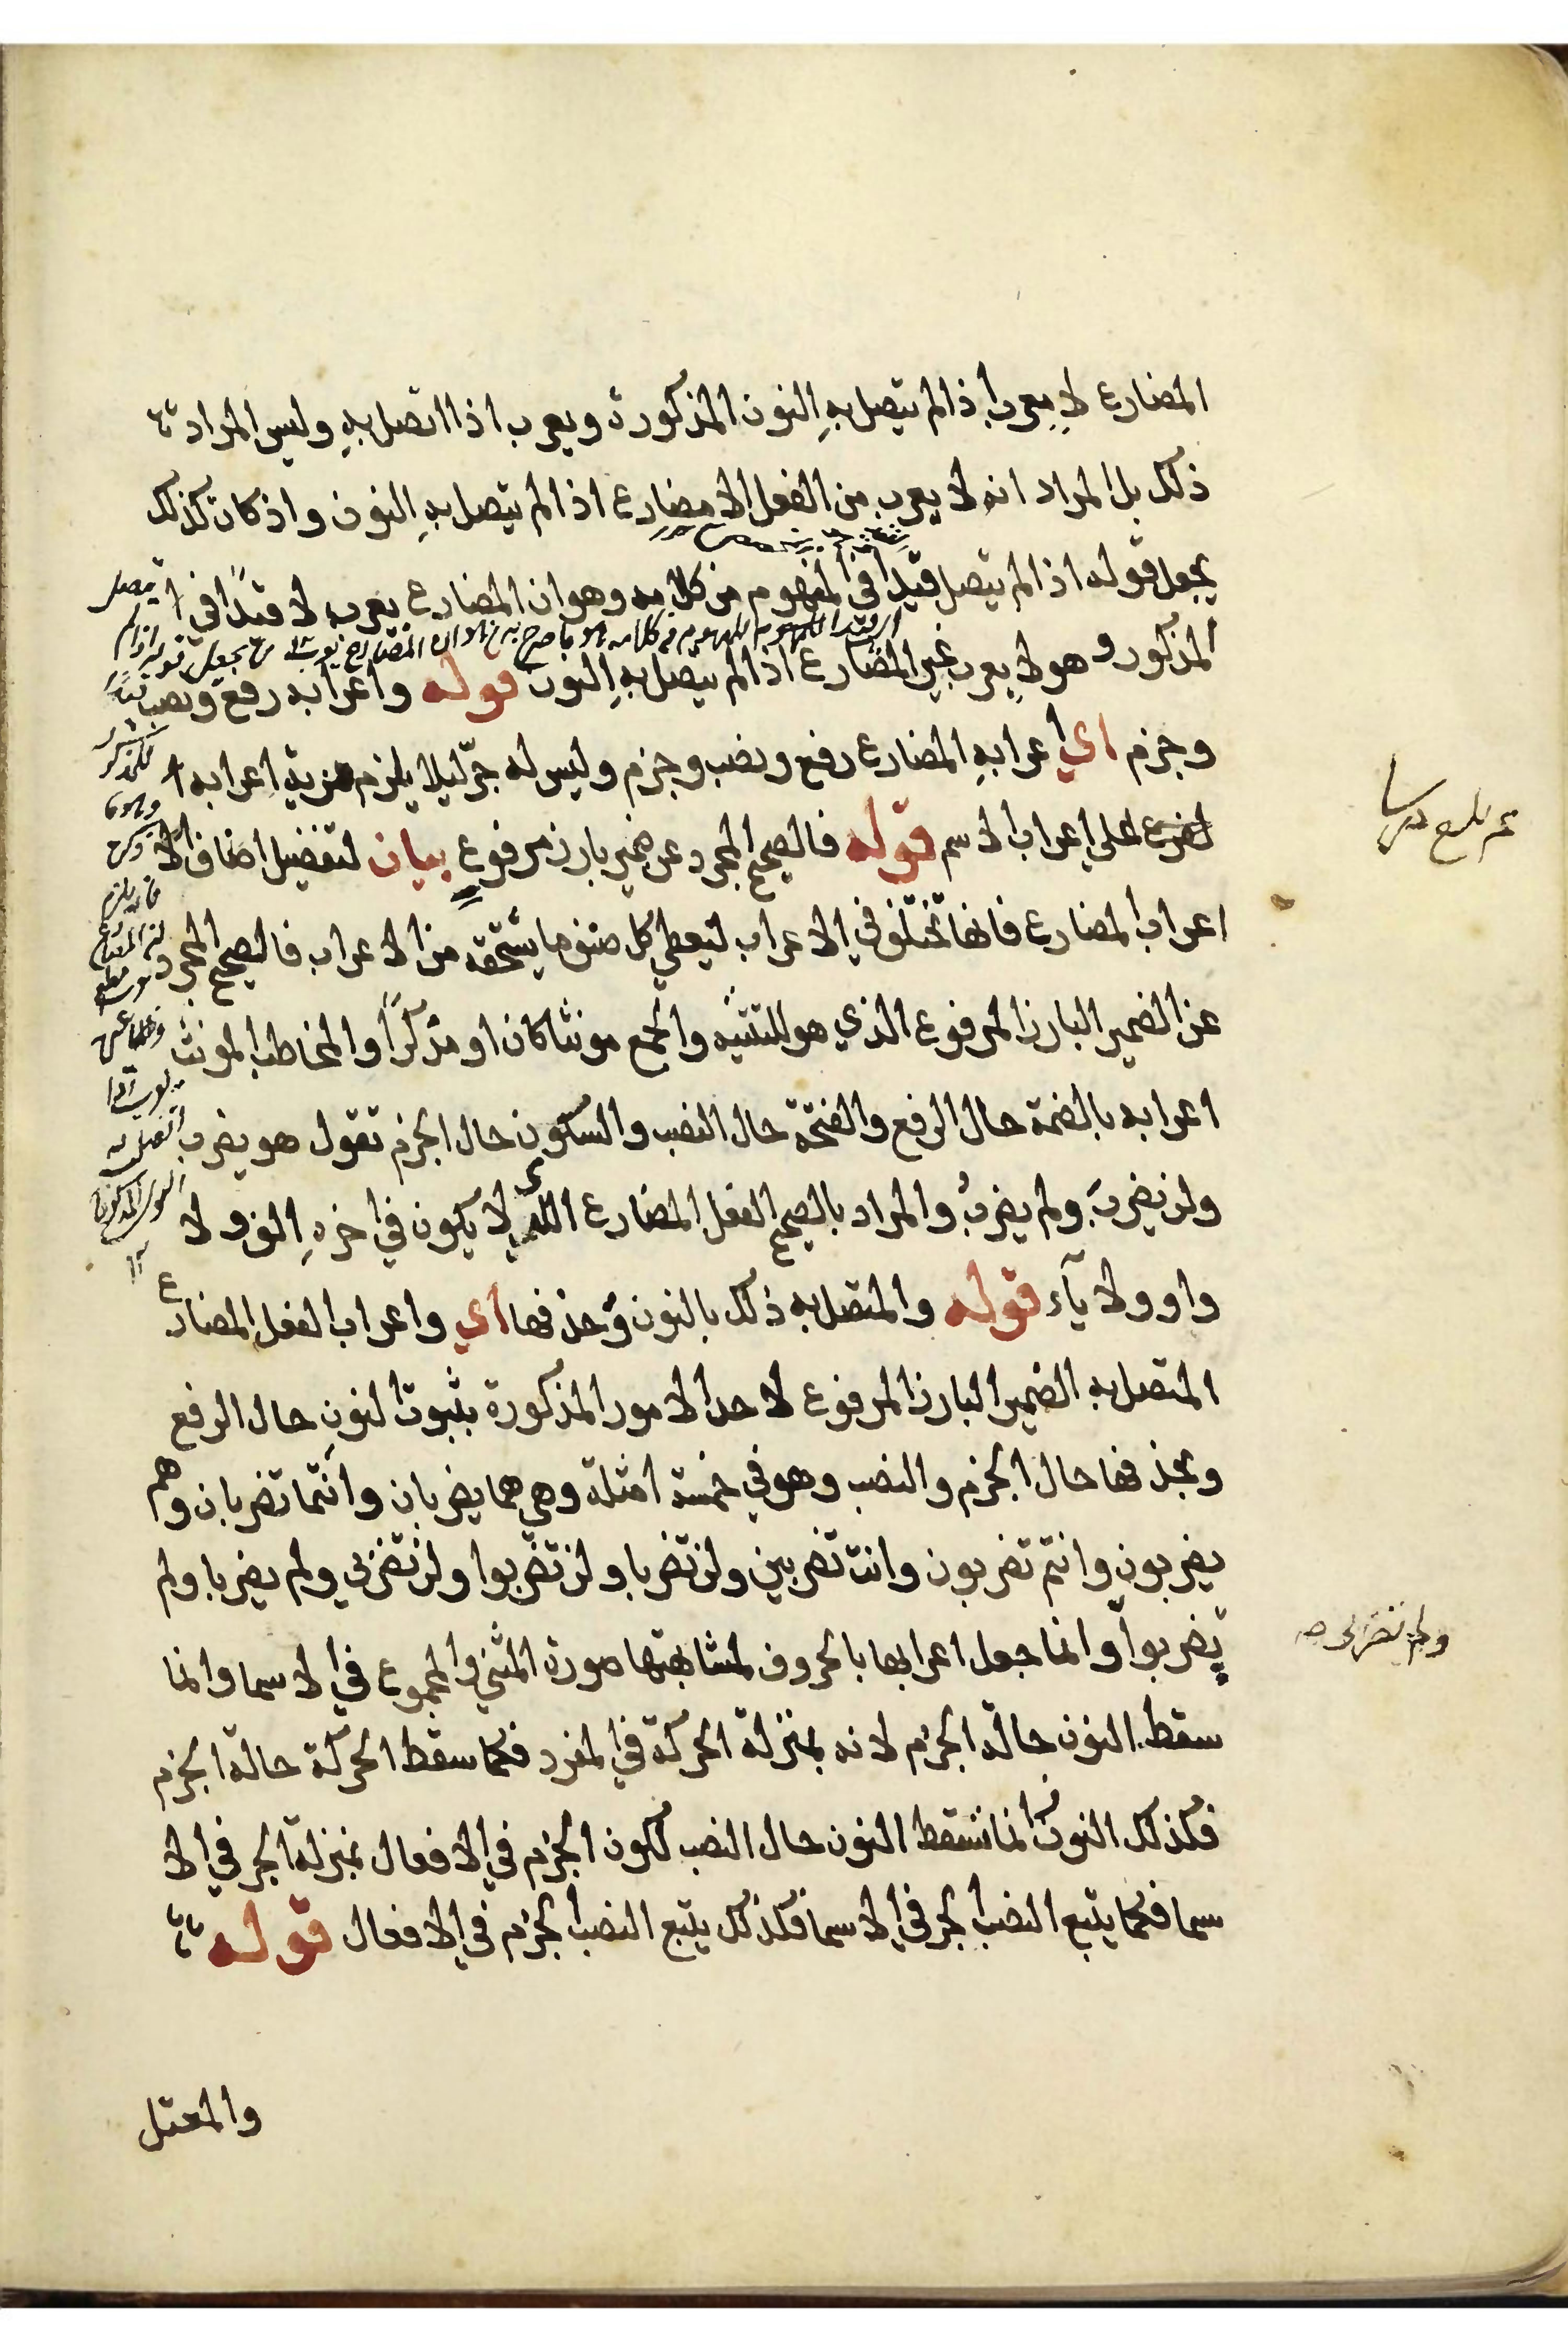 المضارع لا يعرب اذا لم يتصل به النون المذكورة ويعرب اذا اتصل به وليس المراد
ذلك بل المراد انه لا يعرب من الفعل الا مضارع اذا لم يتصل به النون واذ كان كذلك
يجعل قوله اذا لم يتصل قيدا في المفهوم من كلامه وهو ان المضارع يعرب لا قيدًا في
المذكور وهو لا يعرب غير المضارع اذا لم يتصل به النون قوله واعرابه رفع ونصب
وجزم اي اعرابه المضارع رفع ونصب وجزم وليس له جرّ ليلا يلزم مزية اعرابه
على اعراب الاسم قوله فالصحيح المجرد عن ضمير بارز مرفوع بيان لتفضيل اضاف
اعراب المضارع فانها تختلف في الاعراب ليعطي كل صنف ما يستحقه من الاعراب فالصحيح المجرد
عن الضمير البارز المرفوع الذي هو للتثنيه والجمع مونثا كان او مذكرًا والمخاطب المونث
اعرابه بالضمة حال الرفع والفتحة حال النصب والسكون حال الجزم تقول هو يضرب
ولن يضربَ ولم يضربْ والمراد بالصحيح الفعل المضارع الذي لا يكون في اخره الف ولا
واو ولا يآء قوله والمتصل به ذلك بالنون وحذفها اي واعراب الفعل المضارع
المتصل به الضمير البارز المرفوع لاحد الامور المذكورة بثبوت النون حال الرفع
وبحذفها حال الجزم والنصب وهو في خمسة امثلة وهي هما يضربان وانتما تضربان وهم
يضربون وانتم تضربون وانت تضربين ولن تضربا ولن تضربوا ولن تضربي ولم يضربا ولم
يضربوا وانما جعل اعرابها بالحروف لمشابهتها صورة المثني والمجموع في الاسما وانما
ولم تضربي صح
سقط النون حالة الجزم لانه بمنزلة الحركة في المفرد فكما سقط الحركة حالة الجزم
فكذلك النون وانما تسقط النون حال النصب لكون الجزم في الافعال بمنزلة الجر في الا
سما فكما يتبع النصب الجر في الاسما فكذلك يتبع النصب الجزم في الافعال قوله
والمعتل